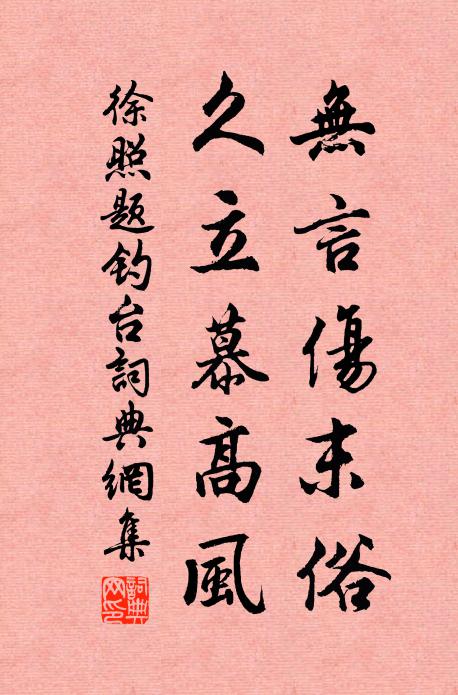 無言傷末俗
久立慕高風
徐照題釣台詞典網集
詞典网印